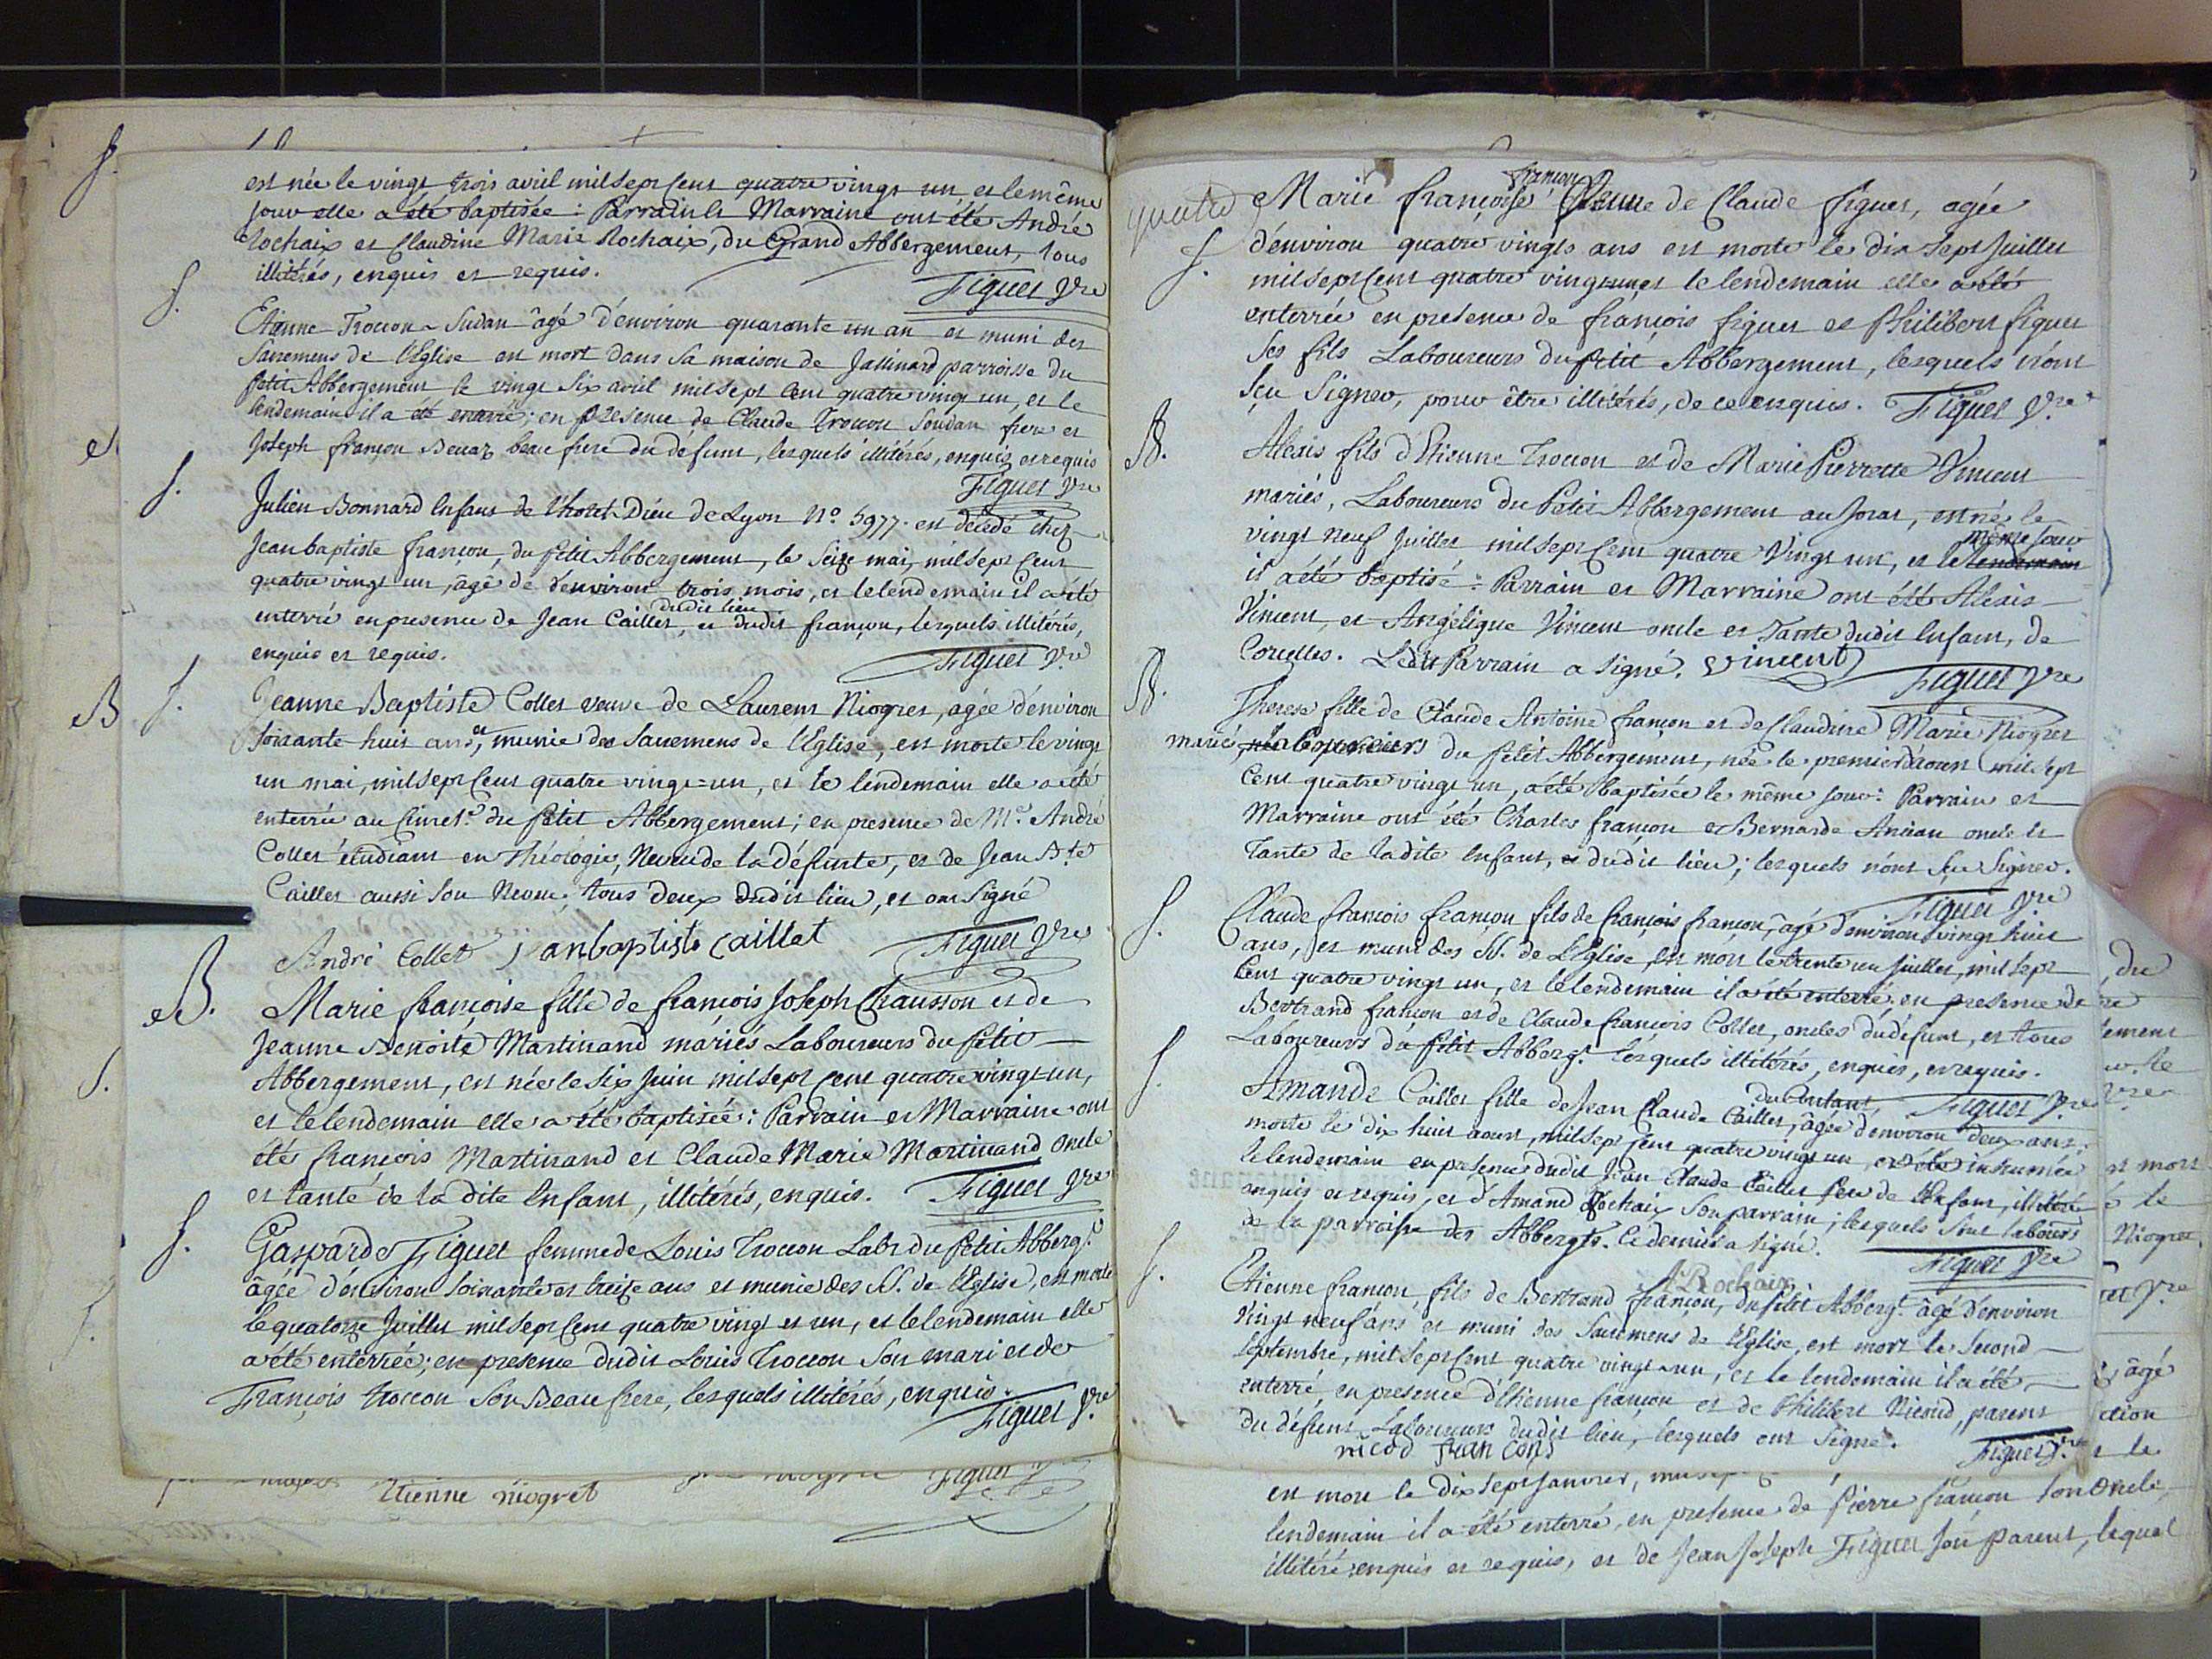 est née le vingt trois avril mil sept cent quatre vingt un, et le même
jour elle a été baptisée : Parrain et Marraine ont été André
Rochaix et Claudine Marie Rochaix, du Grand Abbergement, tous
illitérés, enquis et requis. Figuet Vre
S.
Etienne Troccon-Sudan âgé d'environ quarante un an et muni des
Sacremens de l'Eglise est mort dans sa maison de Jallinard parroisse du
petit Abbergement le vingt six avril mil sept cent quatre vingt un, et le
lendemain il a été enterré ; en presence de Claude Troccon Soudan frere et
Joseph françon Benaz beau frere du défunt, lesquels illitérés, enquis et requis
Figuet Vre
S.
Julien Bonnard Enfant de l'hotel-Dieu de Lyon N.º 5977. est décédé chez
Jean baptiste françon, du petit Abbergement, le seize mai, mil sept cent
quatre vingt un, âgé de d'environ trois mois, et le lendemain il a été
dudit lieu
enterré en presence de Jean Caillet, et dudit françon, lesquels illitérés,
enquis et requis. Figuet Vre
B S.
Jeanne Baptiste Collet veuve de Laurent Niogret, agée d'environ
soixante huit ans, et munie des Sacremens de l'Eglise, est morte le vingt
un mai, mil sept cent quatre vingt-un, et le lendemain elle a été
enterrée au Cimet.e du petit Abbergement ; en presence de M.e André
Collet étudiant en théologie, Neveu de la défunte, et de Jean Bte
Caillet aussi son Neveu ; tous deux dudit lieu, et ont signé
André Collet Janbaptiste Caillat Figuet Vre
B.
Marie françoise fille de françois Joseph Chausson et de
Jeanne Benoite Martinand mariés Laboureurs du petit
Abbergement, est née le six juin mil sept cent quatre vingt-un,
et le lendemain elle a été baptisée : Parrain et Marraine ont
été françois Martinand et Claude Marie Martinand oncle
et tante de la dite Enfant, illitérés, enquis. Figuet Vre
S.
Gasparde Figuet femme de Louis Troccon Labr du petit Abberg.t
âgée d'environ soixante et treize ans et munie des SS. de l'Eglise, est morte
le quatorze juillet mil sept cent quatre vingt et un, et le lendemain elle
a été enterrée ; en presence dudit Louis Troccon son mari et de
François troccon son Beau frere, lesquels illitérés, enquis.
Figuet Vre
Etienne niogret
Figuet V
quatre
françon
Marie françoise Veuve de Claude figuet, agée
S.
d'environ quatre vingts ans est morte le dix sept juillet
mil sept cent quatre vingt un et le lendemain elle a été
enterrée en presence de françois figuet et Philibert figuet
ses fils Laboureurs du petit Abbergement, lesquels n'ont
sçu signer, pour être illitérés, de ce enquis. Figuet Vre
B.
Alexis fils d'Etienne Troccon et de Marie Pierrette Vincent
mariés, Laboureurs du Petit Abbergement au Jorat, est né le
même jour
vingt neuf juillet mil sept cent quatre vingt un, et le lendemain
il a été baptisé : Parrain et Marraine ont été Alexis
Vincent, et Angélique Vincent oncle et Tante dudit Enfant, de
Corcelles. Ledit Parrain a signé. Vincent
Figuet Vre
B.
Therese fille de Claude Antoine françon et de Claudine Marie Niogret
mariés, du petit Abbergement, née le premier d'aoust mil sept
cent quatre vingt un, a été baptisée le même jour : Parrain et
Marraine ont été Charles françon et Bernarde Ancian oncle et
Tante de ladite Enfant, et dudit lieu ; lesquels n'ont sçu signer.
Figuet Vre
S.
Claude françois françon fils de françois françon, âgé d'environ vingt huit
ans, et muni des SS. de l'Eglise, est mort le trente un juillet, mil sept
cent quatre vingt un, et le lendemain il a été enterré ; en presence de
Bertrand françon et de Claude françois Collet, oncles du défunt, et tous
Laboureurs du petit Abberg.t lesquels illitérés, enquis, et requis.
Figuet Vre
S.
Amande Caillet fille de Jean Claude Caillet, âgée d'environ deux ans ;
morte le dix huit aoust, mil sept cent quatre vingt un, a été inhumée
le lendemain en presence dudit Jean Claude Caillet Pere de l'Enfant, illitéré
enquis et requis, et d'Amand Rochaix son parrain ; lesquels sont labours
de la parroisse des Abbergts. Ce dernier a signé.
A Rochaix Figuet Vre
S.
Etienne françon, fils de Bertrand françon, du petit Abberg.t âgé d'environ
vingt neuf ans et muni des Sacremens de l'Eglise, est mort le second
septembre, mil sept cent quatre vingt-un, et le lendemain il a été
enterré, en presence d'Etienne françon et de Philibert Nicod, parens
du défunt, Laboureurs dudit lieu, lesquels ont signé.
nicod fran cons Figuet Vre
est mort le dix sept janvier,
lendemain il a été enterré, en presence de Pierre françon son oncle,
illitéré, enquis et requis, et de Jean Joseph Figuet son parent, lequel
du
ement
Vre
est mort
le
Niogret,
Vre
âgé
ction
le